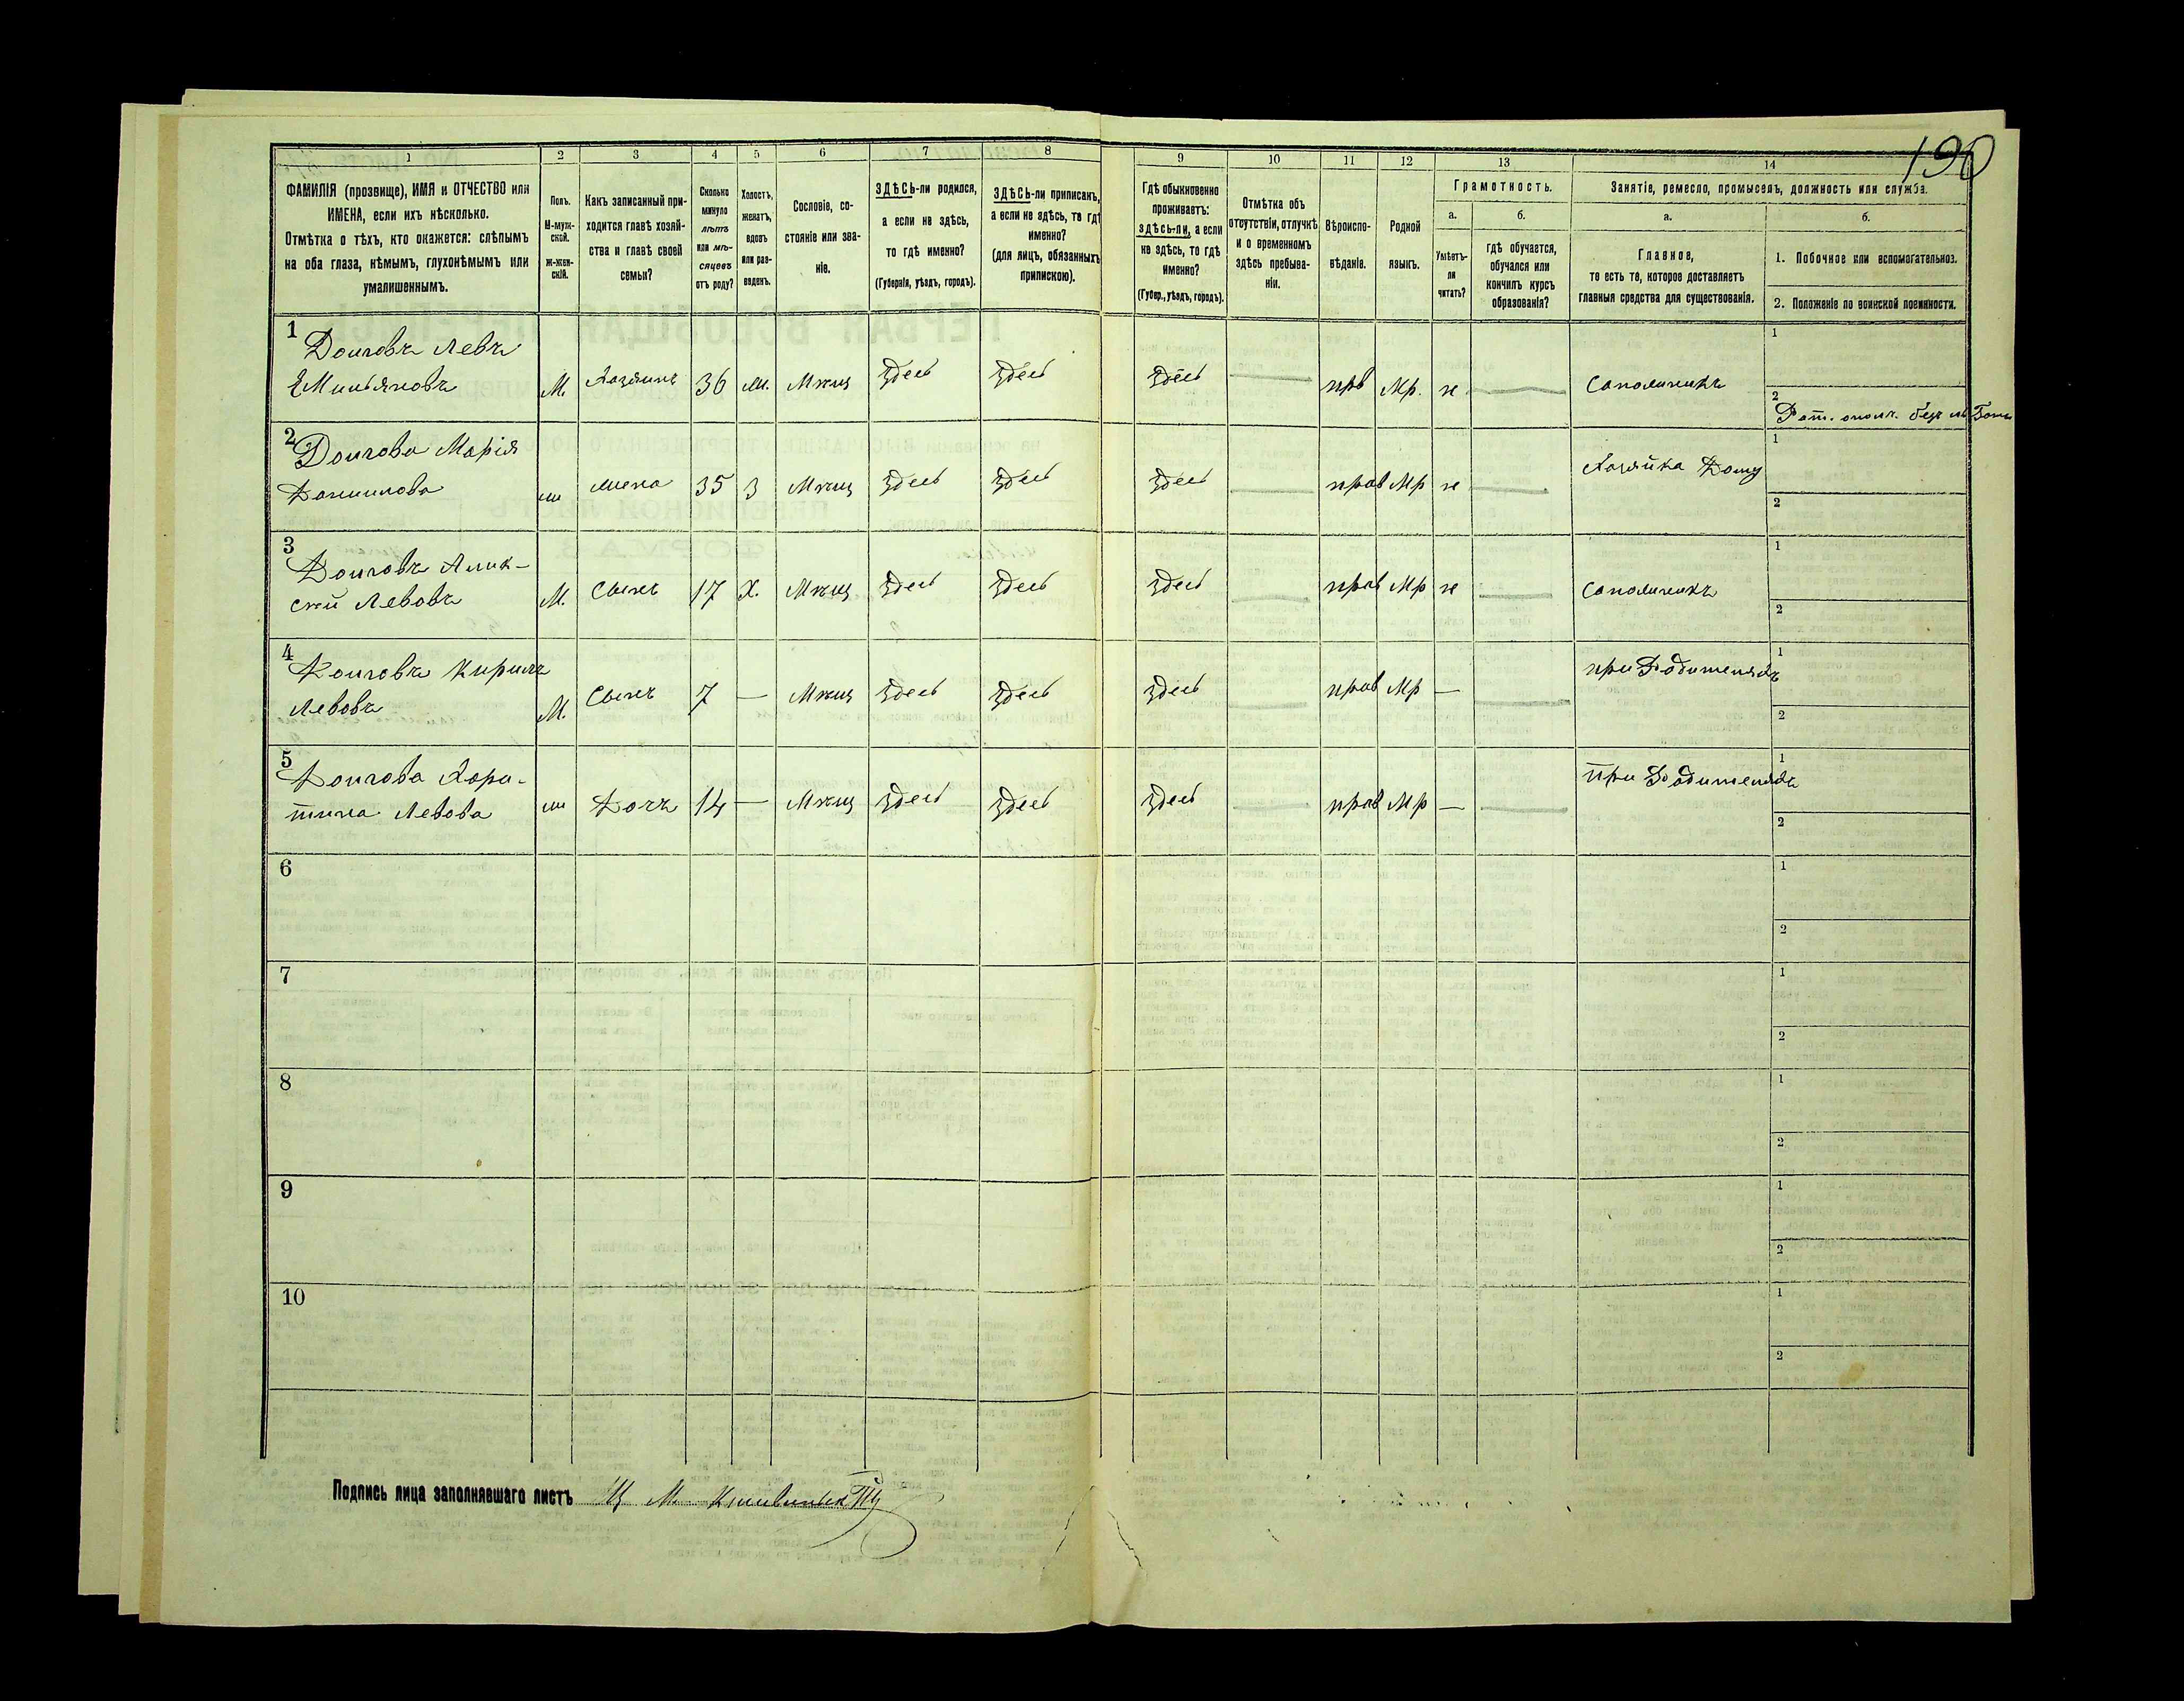 190
1 2 3 4 5 6 7 8 9 10 11 12 13 14
ФАМИЛІЯ (прозвище), ИМЯ и ОТЧЕСТВО или
ИМЕНА, если ихъ нѣсколько.
Отмѣтка о тѣхъ, кто окажется: слѣпымъ
на оба глаза, нѣмымъ, глухонѣмымъ или
умалишеннымъ.
Полъ.
М-муж-
ской.
Ж-жен-
скій.
Какъ записанный при-
ходится главѣ хозяй-
ства и главѣ своей
семьи?
Сколько
минуло
лѣтъ
или мѣ-
сяцевъ
отъ роду?
Холостъ,
женатъ,
вдовъ
или раз-
веденъ.
Сословіе, со-
стояніе или зва-
ніе.
ЗДѢСЬ-ли родился,
а если не здѣсь,
то гдѣ именно?
(Губернія, уѣздъ, городъ).
ЗДѢСЬ-ли приписанъ,
а если не здѣсь, то гдѣ
именно?
(для лицъ, обязанныхъ
припискою).
Гдѣ обыкновенно
проживаетъ:
здѣсь-ли, а если
не здѣсь, то гдѣ
именно?
(Губер., уѣздъ, городъ).
Отмѣтка объ
отсутствіи, отлучкѣ
и о временномъ
здѣсь пребыва-
ніи.
Вѣроиспо-
вѣданіе.
Родной
языкъ.
Грамотность.
а.
Умѣетъ-
ли
читать?
б.
гдѣ обучается,
обучался или
кончилъ курсъ
образованія?
Занятіе, ремесло, промыселъ, должность или служба.
а.
Главное,
то есть то, которое доставляетъ
главныя средства для существованія.
б.
1. Побочное или вспомогательное.
2. Положеніе по воинской повинности.
1 Донговъ Левъ
М. Хозяинъ 36 Мжщ здесь здесь здесь прв Мр. н Сапожникъ
1
2 Рат. ополч. без
2
Донгова Марія
Данилова жена 35 З Мжщ здесь здесь здесь прав Мр н Хозяйка Дому
1
2
3
Донговъ Алик-
сѣй Левовъ М. Сынъ 17 Х. Мжщ здесь здесь здесь прав Мр н Сапожникъ
1
2
4
Донговъ Кирилъ
Левовъ М. Сынъ 7 — Мжщ здесь здесь здесь прав Мр — при Родителяхъ
1
2
5
Донгова Хари-
тина Левова Дочь 14 — Мжщ здесь здесь здесь прав Мр — при Родителяхъ
1
2
6
1
2
7
1
2
8
1
2
9
1
2
10
1
2
Подпись лица заполнявшаго листъ